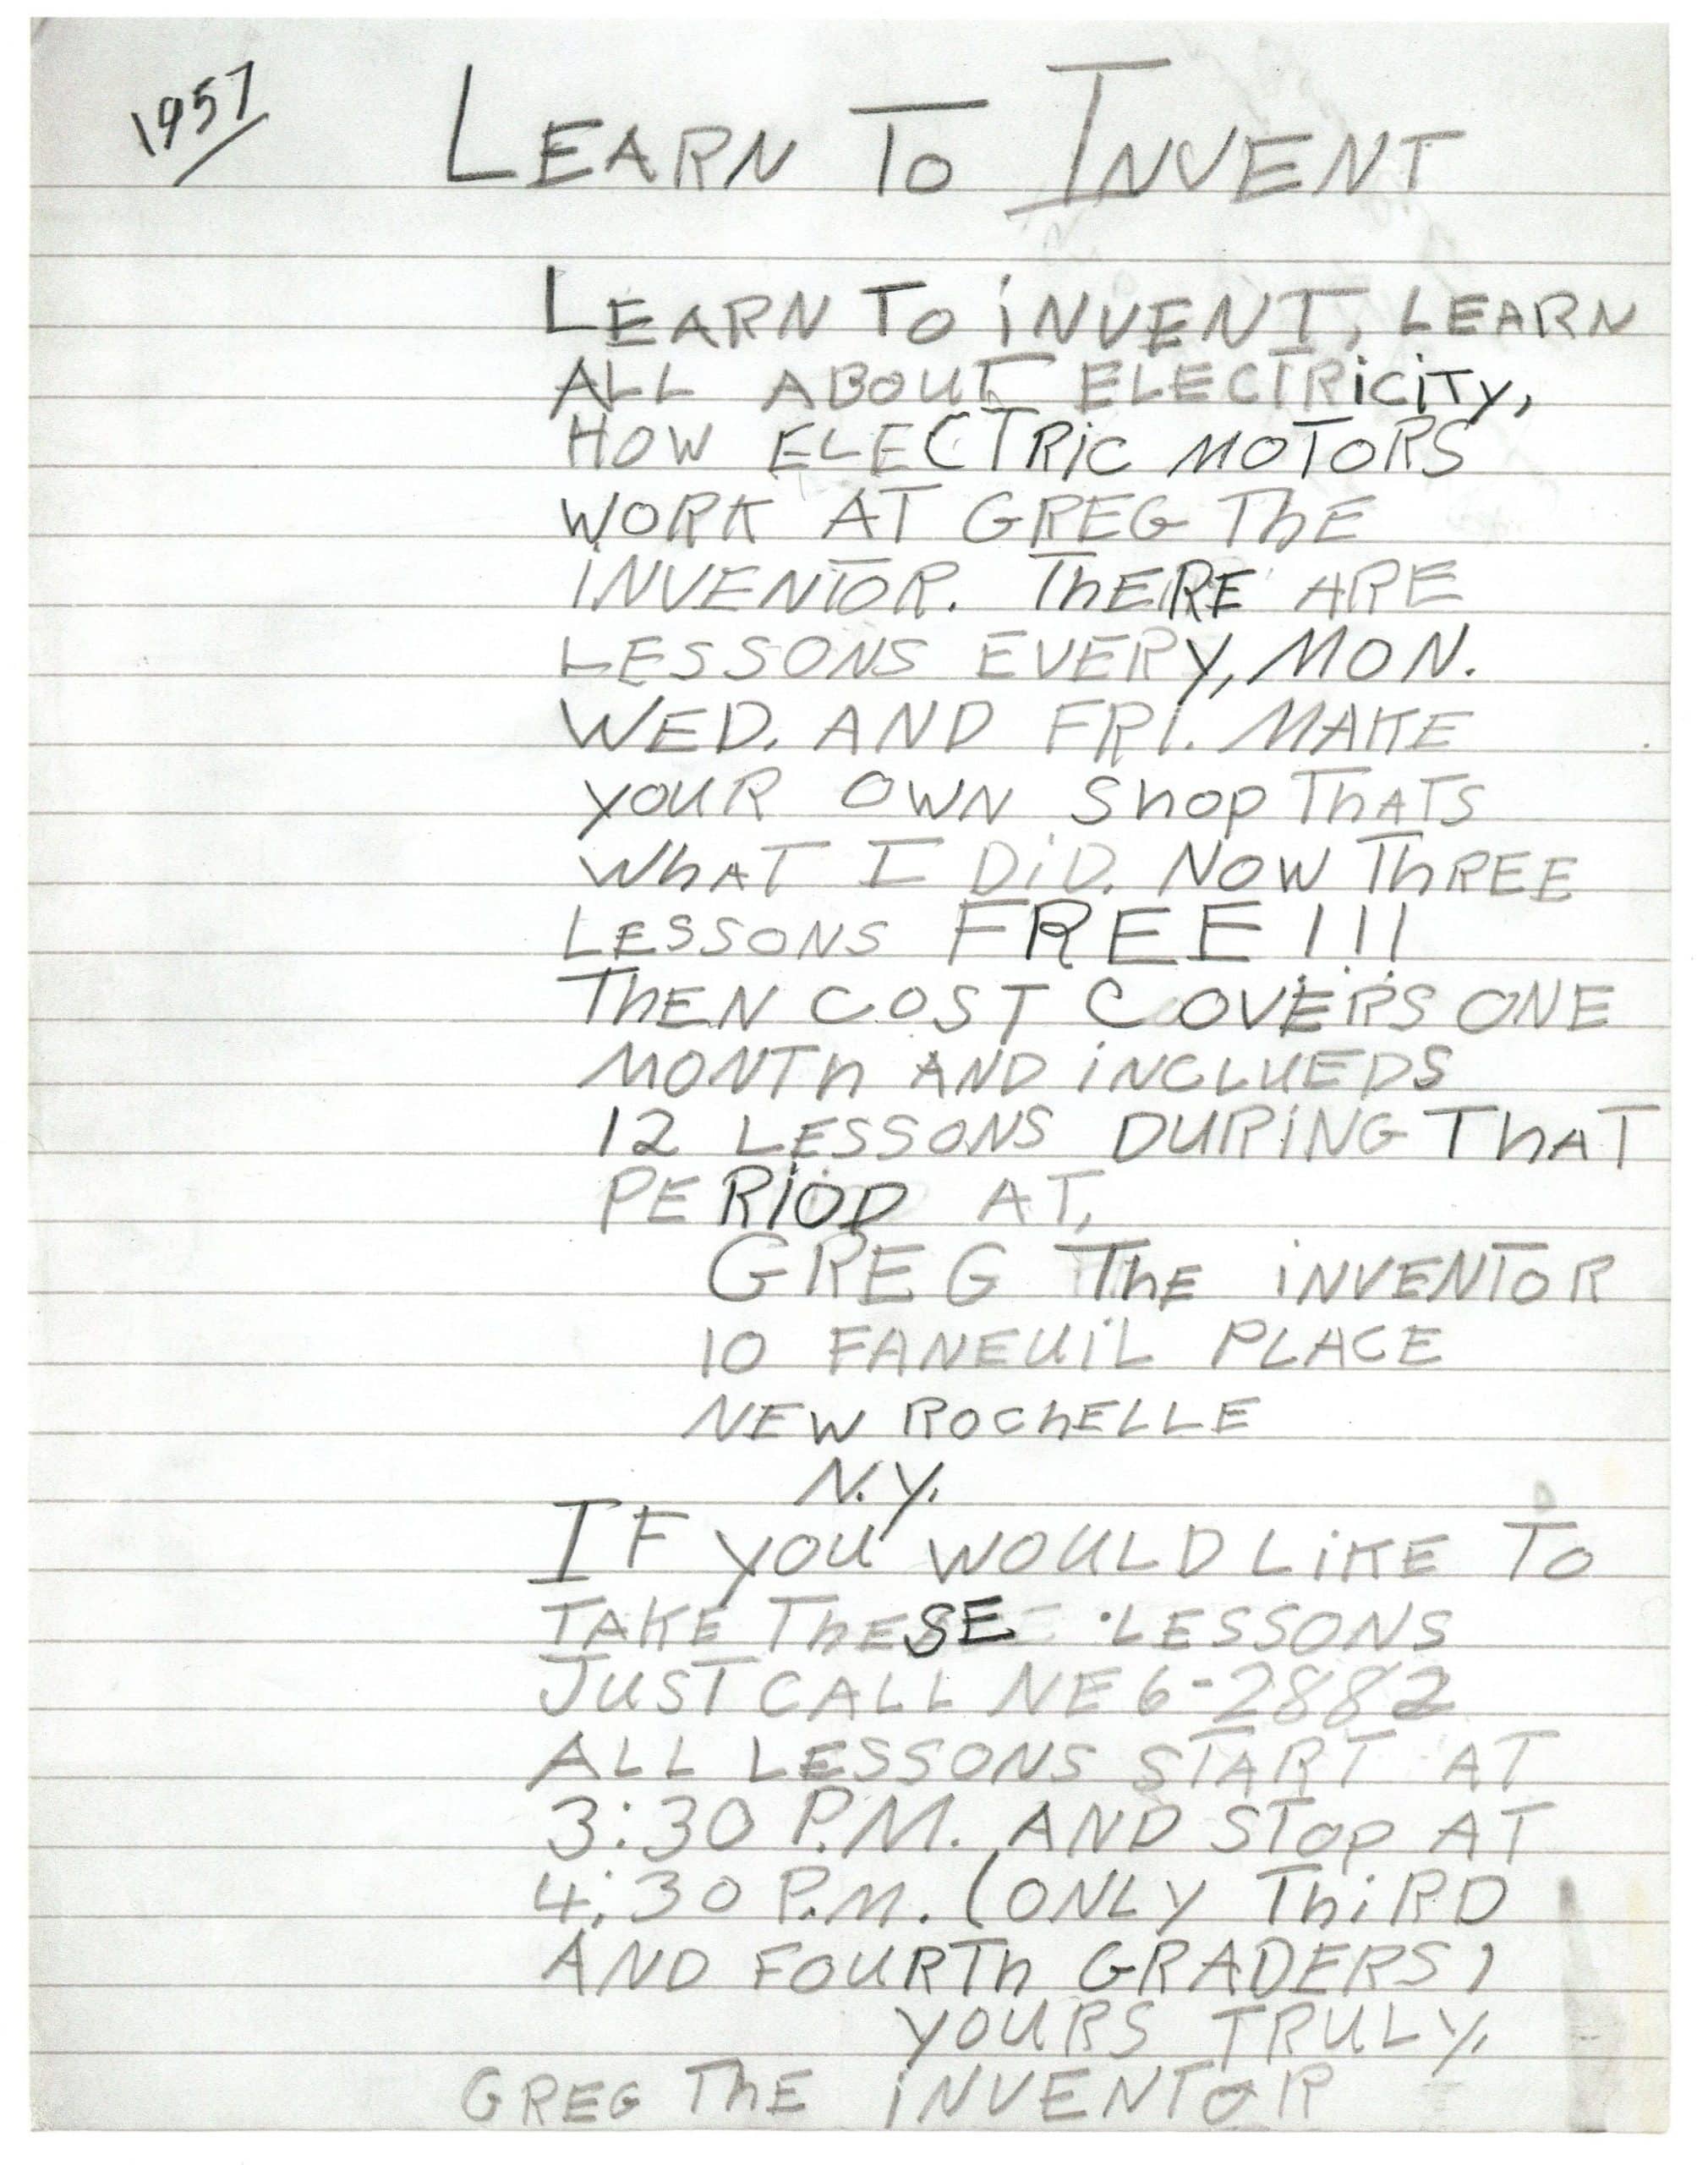 1957
LEARN TO INVENT
LEARN TO iNVENT, LEARN
ALL ABOUT ELECTRiCiTy,
HOW ELECTRiC MOTORS
WORK AT GREG ThE
INVENTOR. ThERE ARE
LESSONS EVERy, MON.
WED. AND FRI. MAKE
yOUR OWN Shop ThATS
WhAT I DiD. NOW ThREE
LESSONS FREE!!!
ThEN COST COVERS ONE
MONTh AND iNCLUEDS
12 LESSONS DURiNG ThAT
PERiOD AT,
GREG ThE iNVENTOR
10 FANEUiL PLACE
NEW ROChELLE
N.y.
IF yOU WOULD LiKE TO
TAKE ThESE LESSONS
JUST CALL NE6-2882
ALL LESSONS START AT
3:30 P.M. AND STOp AT
4:30 P.M. (ONLY ThiRD
AND FOURTh GRADERS)
yOURS TRULy,
GREG ThE iNVENTOR